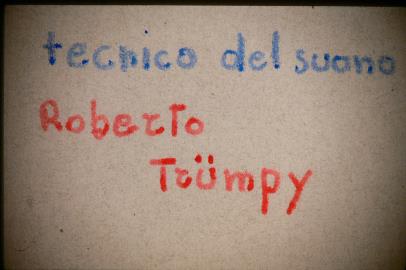 tecnico del suono
Roberto
Trümpy